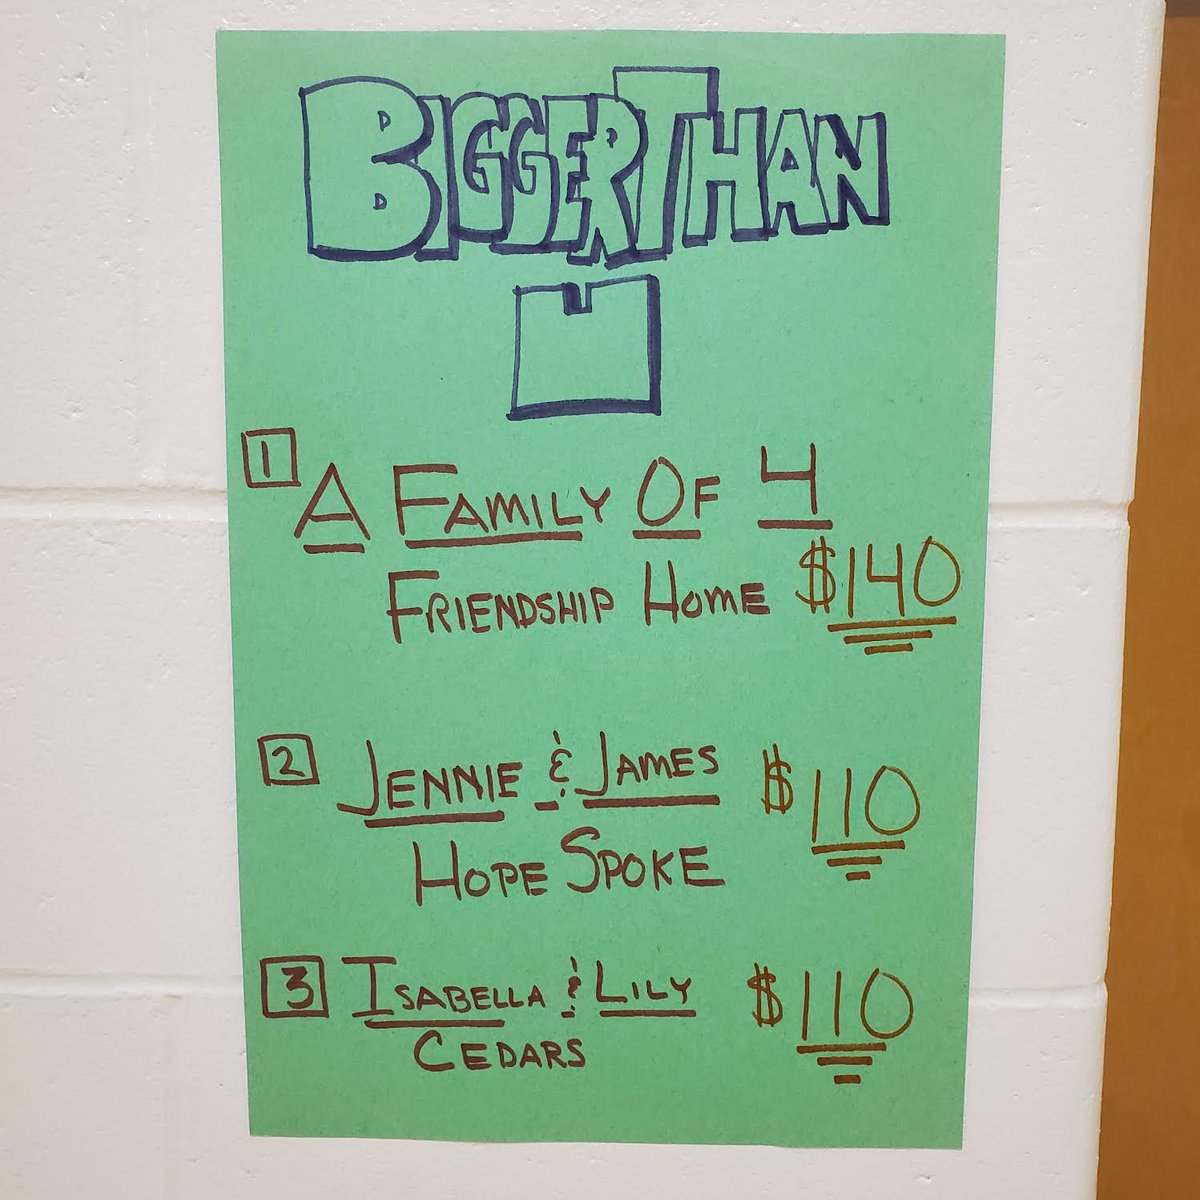 BIGGER THAN
U
1 A FAMILY OF 4
FRIENDSHIP HOME $140
2 JENNIE & JAMES $110
HOPE SPOKE
3 ISABELLA & LILY $110
CEDARS